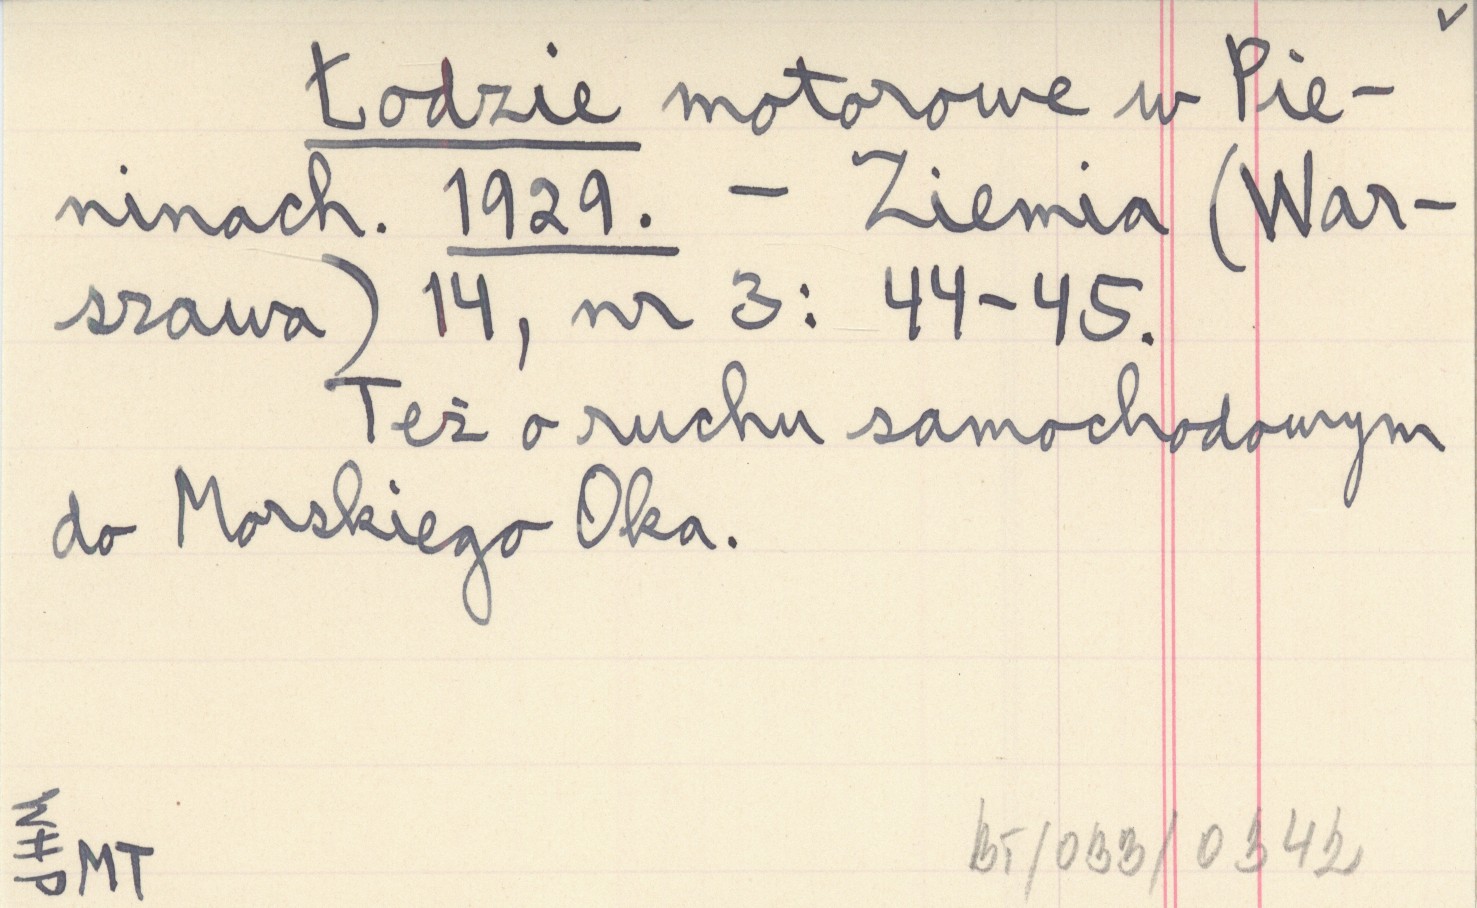 Łodzie motorowe w Pie-
ninach. 1929. – Ziemia (War-
szawa) 14, nr 3: 44-45.
Też o ruchu samochodowym
do Morskiego Oka.
WHP
MT
BT/033/0342